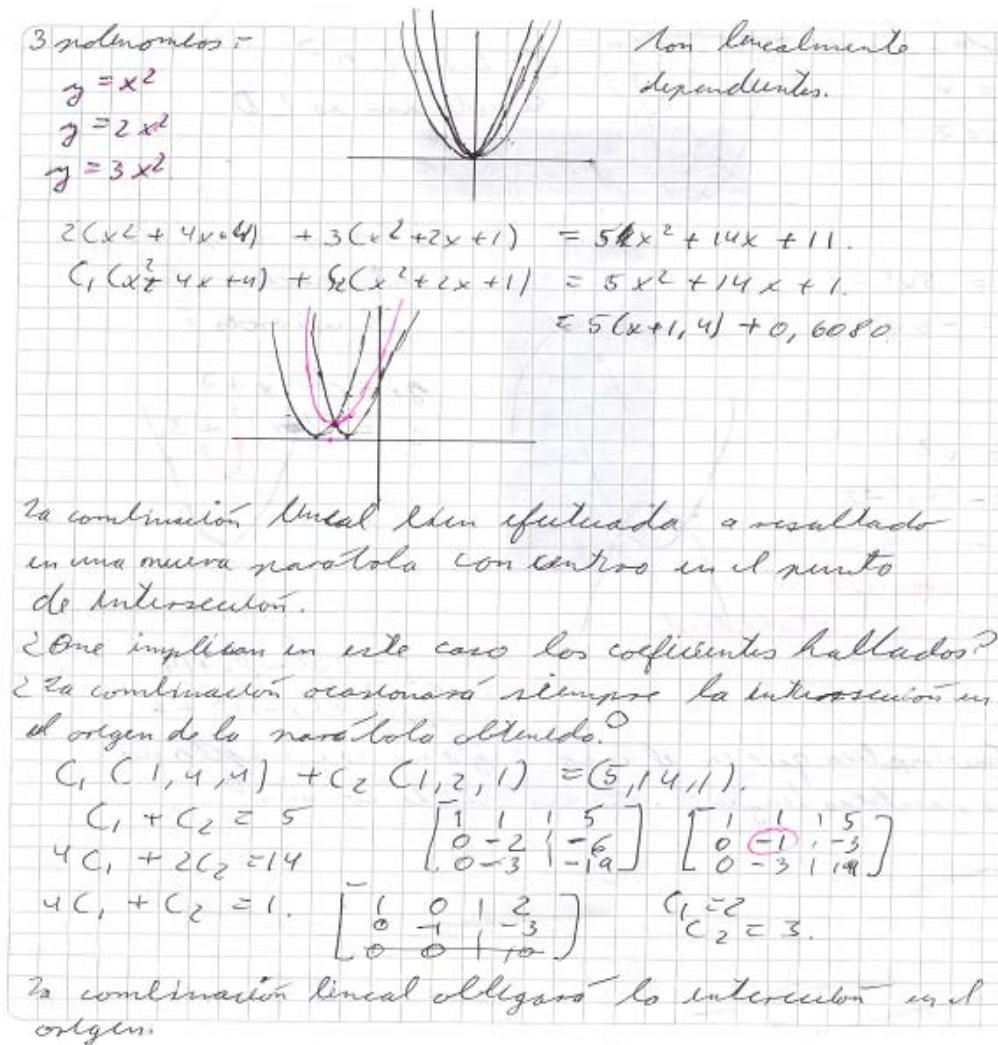 3 polinomios =
y = x²
y = 2x²
y = 3x²
son linealmente
dependientes.
2(x2 + 4x+4) + 3(x²+2x+1) = 5x² + 14x + 11.
C₁(x²+ 4x+4) + C₂(x²+2x+1) = 5x²+14x+1.
= 5(x+1,4) + 0,6080
La combinación lineal bien efectuada a resultado
en una nueva parábola con centro en el punto
de intersección.
¿Que implican en este caso los coeficientes hallados?
¿La combinación ocasionará siempre la intersección en
el origen de la parábola obtenida?
C₁ (1,4,4) + C₂ (1,2,1) = (5,14,1).
C₁ + C₂ = 5
4C₁ + 2C₂ = 14
4C₁ + C₂ = 1.
[ 1 1 | 5
0 -2 | -6
0 -3 | -19 ]
[ 1 1 | 5
0 -1 | -3
0 -3 | 19 ]
[ 1 0 | 2
0 -1 | -3
0 0 | 10 ]
C₁ = 2
C₂ = 3.
La combinación lineal obligará la intersección en el
origen.